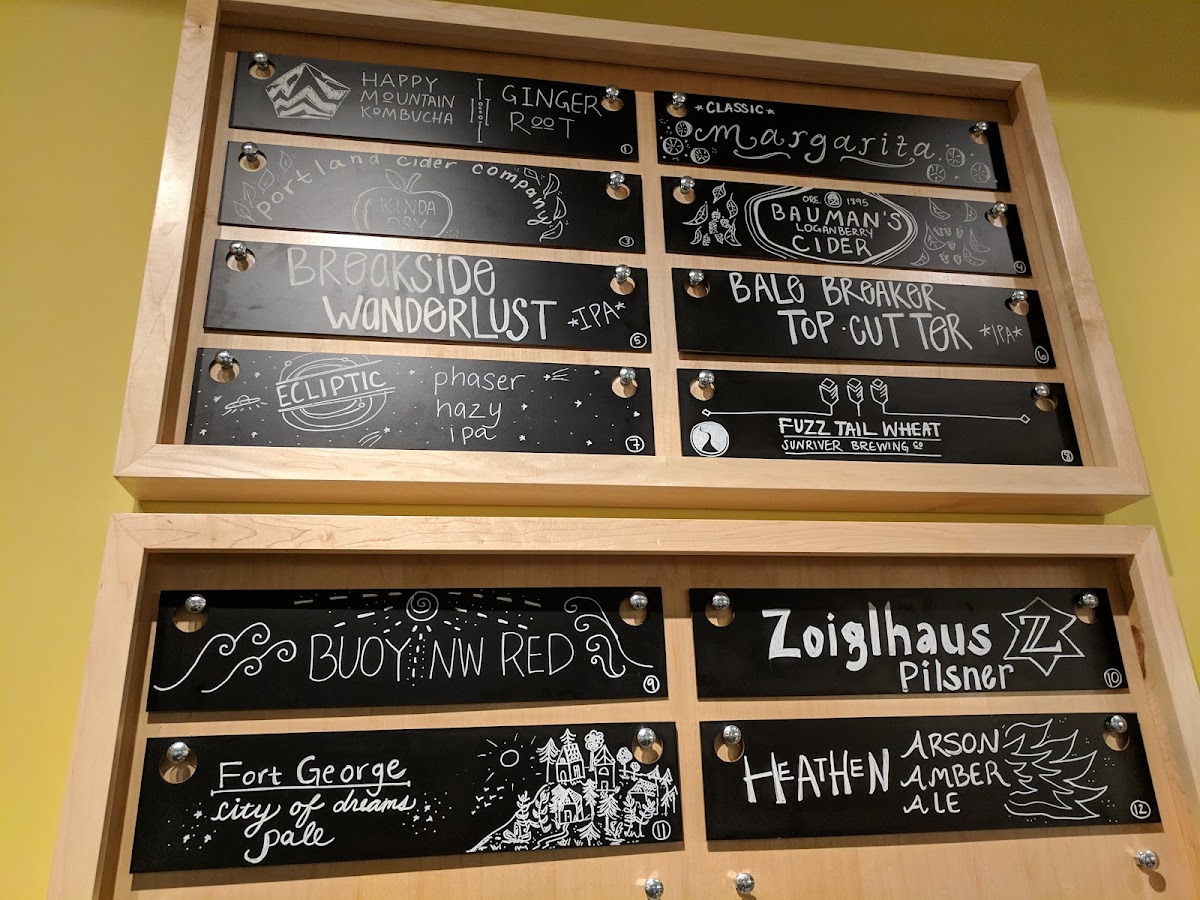 HAPPY
MOUNTAIN
KOMBUCHA
GINGER
ROOT
1
*CLASSIC*
margarita
portland cider company
KINDA
DRY
3
ORE. 1895
BAUMAN'S
LOGANBERRY
CIDER
4
BREAKSIDE
WANDERLUST *IPA*
5
BALE BREAKER
TOP·CUTTER *IPA*
6
ECLIPTIC
phaser
hazy
ipa
7
FUZZ TAIL WHEAT
SUNRIVER BREWING CO
8
BUOY NW RED
9
Zoiglhaus
Pilsner
Z
10
Fort George
city of dreams
pale
11
HEATHEN
ARSON
AMBER
ALE
12